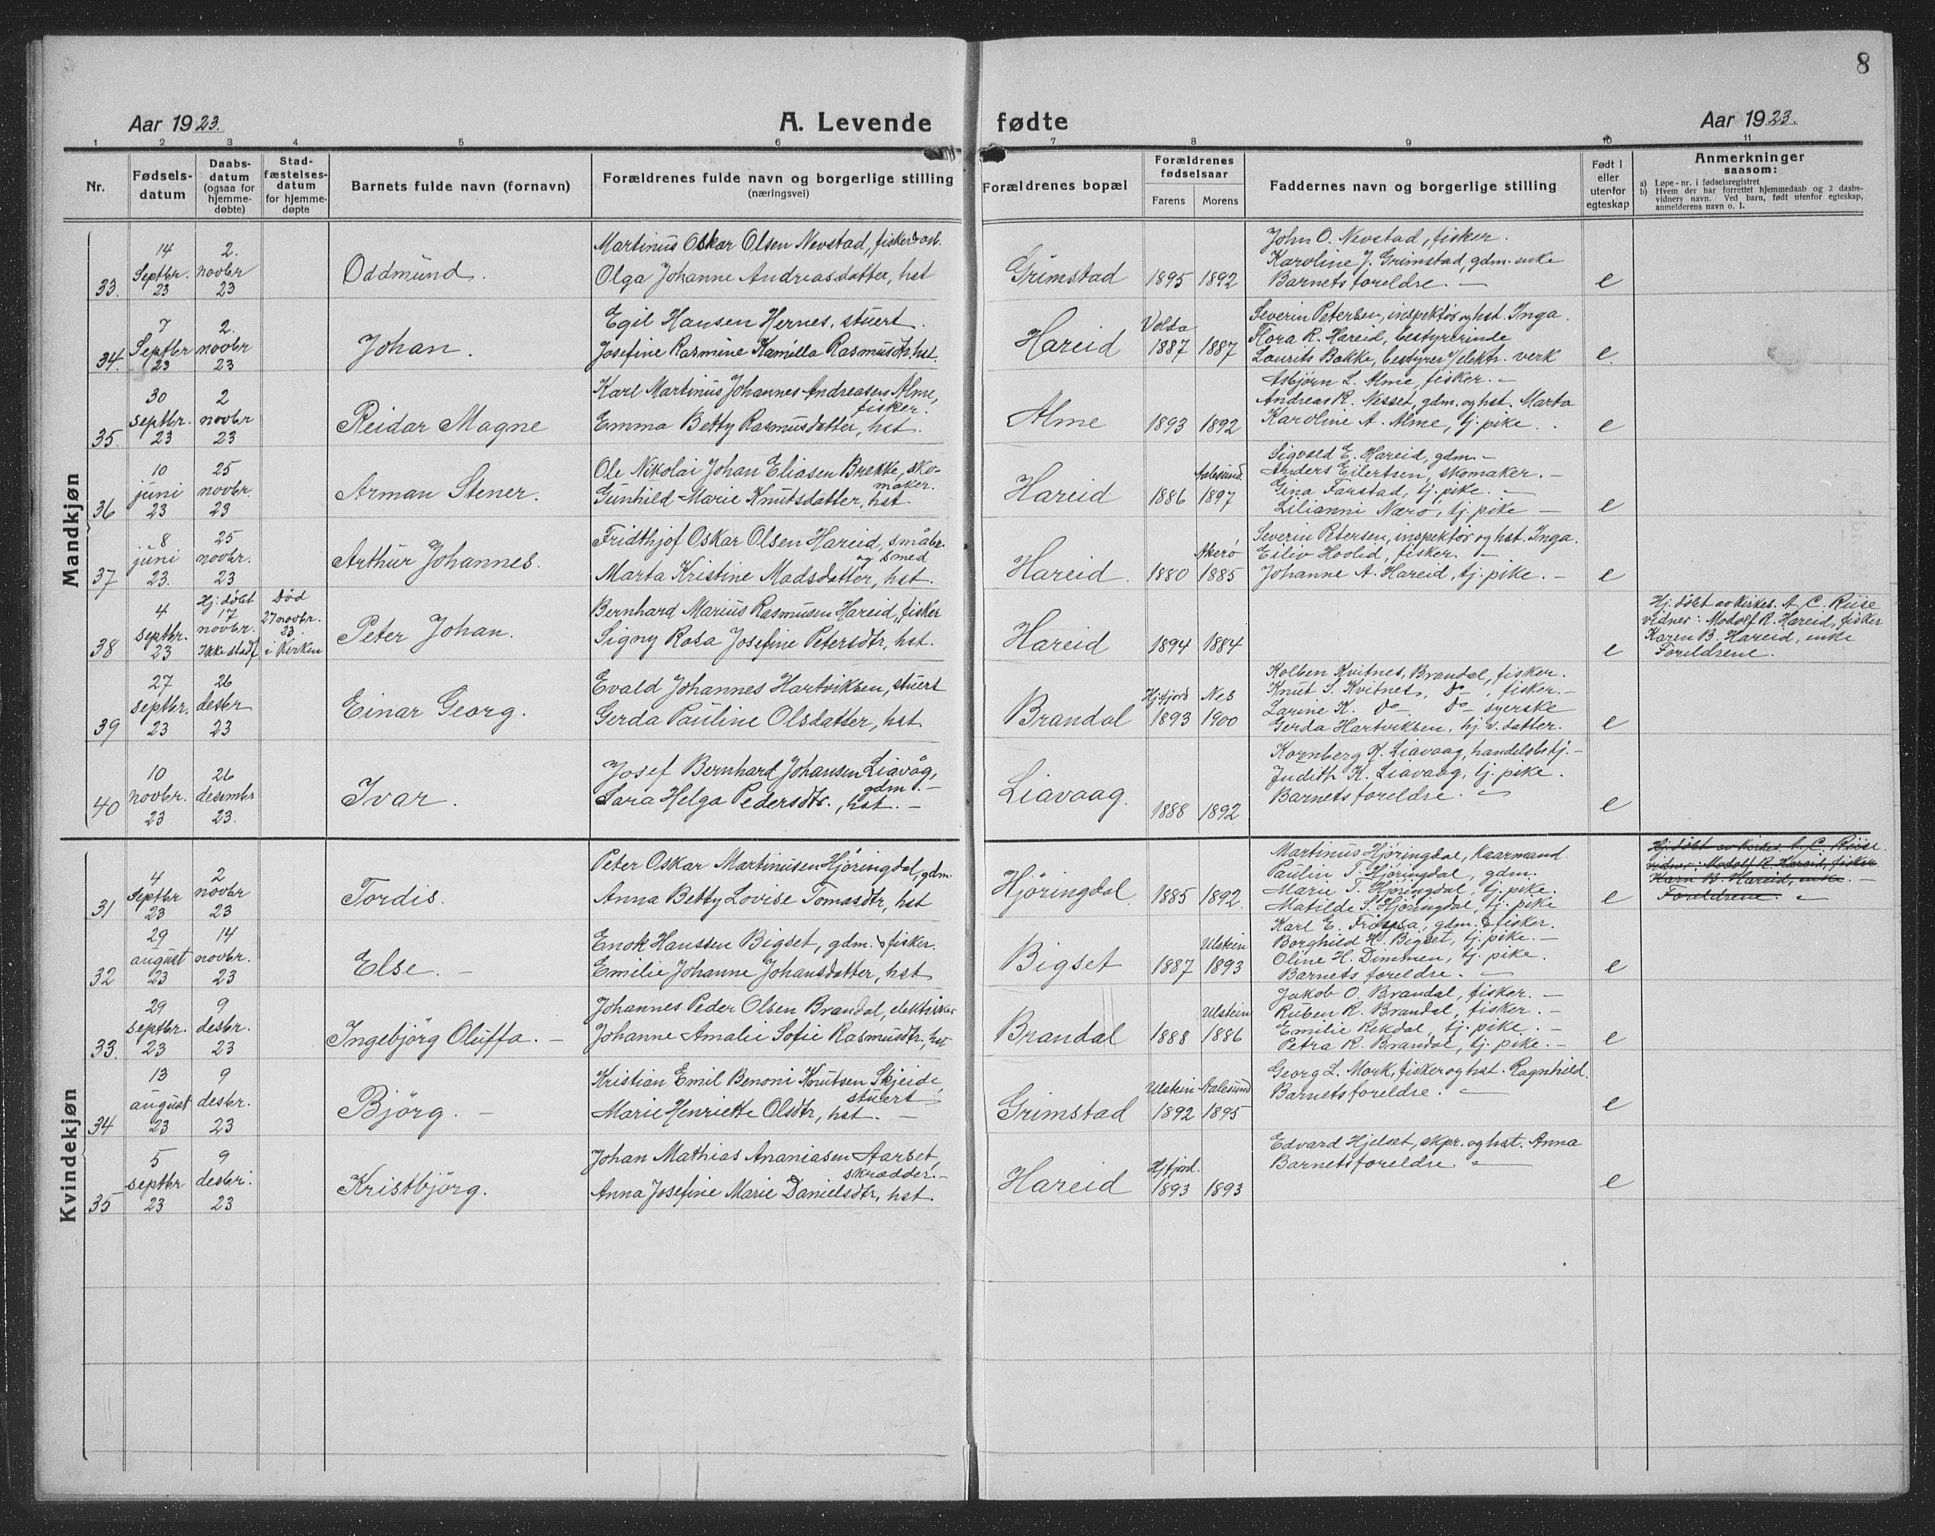 8
Aar 1923. A. Levende fødte Aar 1923.
1 2 3 4 5 6 7 8 9 10 11
Nr.
Fødselsdatum
Daabsdatum (ogsaa for hjemmedøbte)
Stadfæstelsesdatum for hjemmedøpte
Barnets fulde navn (fornavn)
Forældrenes fulde navn og borgerlige stilling
(næringsvei)
Forældrenes bopæl
Forældrenes fødselsaar
Farens Morens
Faddernes navn og borgerlige stilling
Født i eller utenfor egteskap
Anmerkninger
saasom:
a) Løpe-nr. i fødselsregistret
b) Hvem der har forrettet hjemmedaab og 2 daabsvidners navn. Ved barn, født utenfor egteskap, anmelderens navn o. l.
Mandkjøn
33. 14 Septbr. 23 2. novbr 23 Oddmund.
Martinus Oskar Olsen Nevstad, fisker
Olga Johanne Andreasdatter, hst
Grimstad 1895 1892
John O. Nevstad, fisker.
Karoline J. Grimstad, gdm. enke
Barnets foreldre. —
e
34. 7 Septbr 23 2. novbr 23 Johan.
Egil Hansen Hernes, stuert.
Josefine Rasmine Kamilla Rasmusdtr. hst.
Hareid Volda 1887 1887
Severin Petersen, inspektør og hst. Inga.
Flora R. Hareid, bestyrerinde
Laurits Bakke, bestyrer v/ elektr. verk
e.
35. 30 septbr. 23 2 novbr 23 Reidar Magne
Karl Martinus Johannes Andreasen Alme,
fisker.
Emma Betty Rasmusdatter, hst.
Alme 1893 1892
Asbjørn L. Alme, fisker. —
Andreas R. Nesset, gdm. og hst. Marta
Karoline A. Alme, tj. pike.
e
36 10 juni 23 25 novbr. 23 Arman Stener.
Ole Nikolai Johan Eliasen Brekke, sko-
maker.
Gunhild Marie Knutsdatter, hst.
Hareid 1886 Aalesund 1897
Sigvald E. Hareid, gdm. —
Anders Eilertsen, skomaker. —
Gina Farstad, tj. pike. —
Lilianni Nærø, tj. pike —
e
37 8 juni 23. 25 novbr. 23 Arthur Johannes.
Fridthjof Oskar Olsen Hareid, småbr.
og smed
Marta Kristine Madsdatter, hst.
Hareid. 1880 Akerø 1885
Severin Petersen, inspektør og hst. Inga.
Eiliv Hoolid, fisker. —
Johanne A. Hareid, tj. pike. —
e
38 4 septbr. 23 Hj. døbt 17 novbr. Ikke stadf. Død 27 novbr. 23. i Kirken Peter Johan.
Bernhard Marius Rasmusen Hareid, fisker
Signy Rosa Josefine Petersdtr, hst.
Hareid 1894 1884
e
Hj. døbt av kirkes. A. C. Riise
vidner: Modolf R. Hareid, fisker
Karen B. Hareid, enke
Foreldrene.
39 27 septbr. 23 26 desbr 23 Einar Georg.
Evald Johannes Hartviksen, stuert
Gerda Pauline Olsdatter, hst.
Brandal Hjfjord 1893 Nes 1900
Kolben Kvitnes, Brandal, fisker.
Knut S. Kvitnes, Do , fisker. —
Larine K. Do Do syerske
Gerda Hartviksen, hj. v. datter.
e
40 10 novbr. 23 26 desembr 23. Ivar.
Josef Bernhard Johansen Liavåg,
gdm. —
Sara Helga Pedersdtr., hst. —
Liavaag. 1888 1892
Kornberg Liavaag, handelsbetj. —
Judith K. Liavaag, tj. pike.
Barnets foreldre. —
e
Kvindekjøn
31 4 Septbr 23 2 novbr 23 Tordis.
Peter Oskar Martinusen Hjøringdal, gdm.
Anna Betty Lovise Tomasdtr, hst
Hjøringdal. 1885 1892.
Martinus Hjøringdal, kaarmand.
Paulin T. Hjøringdal, gdm.
Marie T. Hjøringdal, tj. pike.
Matilde S. Hjøringdal, tj. pike
e
Hj. døbt av kirkes. A. C. Riise
vidner: Modolf R. Hareid, fisker
Karn B. Hareid, enke. —
Foreldrene.
32 29 august 23 14 novbr. 23 Else. —
Enok Hanssen Bigset, gdm. & fisker.
Emilie Johanne Johansdatter, hst
Bigset 1887 Ulstein 1893
Karl E. gdm. & fisker.
Borghild H. Bigset, tj. pike. —
Oline H. Dimmen, tj. pike.
Barnets foreldre. —
e
33. 29 septbr. 23 9 desbr. 23 Ingebjörg Oluffa. —
Johannes Peder Olsen Brandal, elektriker
Johanne Amalie Sofie Rasmusdtr, hst
Brandal 1888 Ulstein 1886
Jakob O. Brandal, fisker. —
Ruben R. Brandal, fisker. —
Emilie Rekdal, tj. pike. —
Petra R. Brandal, tj. pike. —
e
34 13 august 23 9 desbr. 23 Björg. —
Kristian Emil Benoni Knutsen Skjeide,
stuert
Marie Henriette Olsdtr, hst. —
Grimstad Ulstein 1892 Aalesund 1895
Georg L. Mork, fisker og hst. Ragnhild.
Barnets foreldre. —
e
35 5 septbr 23 9 desbr. 23 Kristbjörg.
Johan Mathias Ananiasen Aarset,
skrædder. —
Anna Josefine Marie Danielsdtr, hst.
Hareid Hjfjord. 1893 1893
Edvard Hjelset, skpr. og hst. Anna
Barnets foreldre. —
e